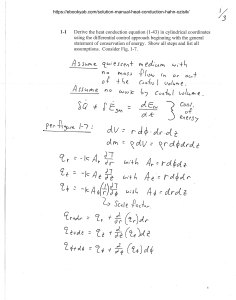 https://ebookyab.com/solution-manual-heat-conduction-hahn-ozisik/
1/3
1-1 Derive the heat conduction equation (1-43) in cylindrical coordinates
using the differential control approach beginning with the general
statement of conservation of energy. Show all steps and list all
assumptions. Consider Fig. 1-7.
Assume quiescent medium with
no mass flow in or out
of the control volume.
Assume no work by control volume.
δQ + δEgen = dEcv/dt } Cons. of energy
per figure 1-7: dV = r dφ dr dz
dm = ρdV = ρ r dφ dr dz
qr = -k Ar ∂T/∂r with Ar = r dφ dz
qz = -k Az ∂T/∂z with Az = r dr dφ
qφ = -k Aφ (1/r) ∂T/∂φ with Aφ = dr dz
↳ scale factor
qr+dr = qr + ∂/∂r (qr) dr
qz+dz = qz + ∂/∂z (qz) dz
qφ+dφ = qφ + ∂/∂φ (qφ) dφ